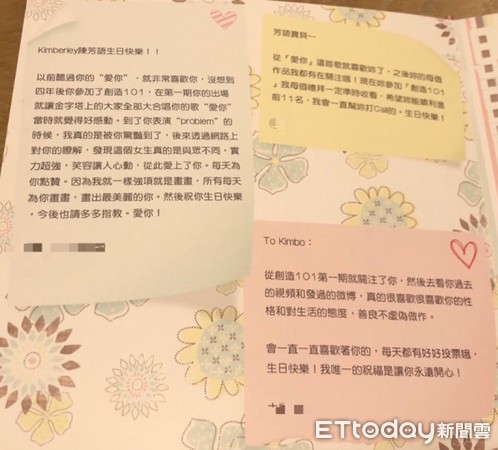 Kimberley陳芳語生日快樂！！
以前聽過你的"愛你"，就非常喜歡你，沒想到
四年後你參加了創造101，在第一期你的出場
就讓金字塔上的大家全部大合唱你的歌"愛你"
當時就覺得好感動。到了你表演"problem"的
時候，我真的是被你驚豔到了，後來透過網路上
對你的瞭解，發現這個女生真的是與眾不同，實
力超強，笑容讓人心動，從此愛上了你。每天為
你點贊。因為我就一樣強項就是畫畫，所有每天
為你畫畫，畫出最美麗的你。然後祝你生日快樂
，今後也請多多指教。愛你！
芳語寶貝~
從「愛你」這首歌就喜歡妳了，之後妳的每個
作品我都有在關注哦！現在妳參加「創造101
」我每個禮拜一定準時收看，希望妳能順利進
前11名，我會一直幫妳打Call的。生日快樂！
To Kimbo：
從創造101第一期就關注了你，然後去看你過去
的視頻和發過的微博，真的很喜歡很喜歡你的性
格和對生活的態度，善良不虛偽做作。
會一直一直喜歡著你的，每天都有好好投票哦，
生日快樂！我唯一的祝福是讓你永遠開心！
ETtoday新聞雲